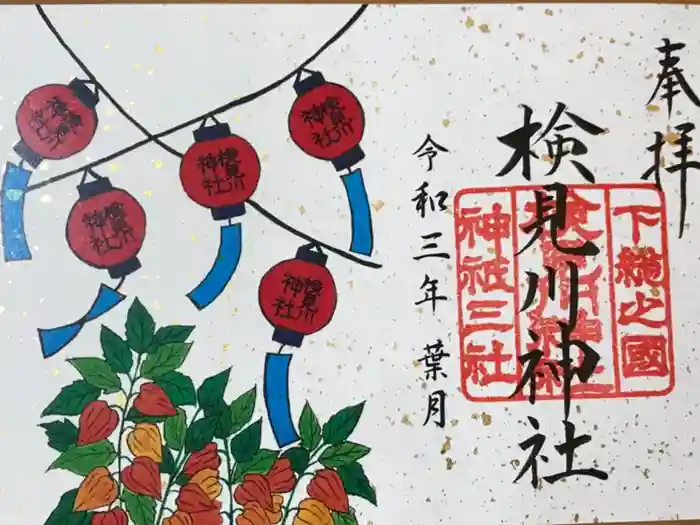 奉拝
検見川神社
下總之國
神祇三社
令和三年 葉月
検見川神社
検見川神社
検見川神社
検見川神社
検見川神社